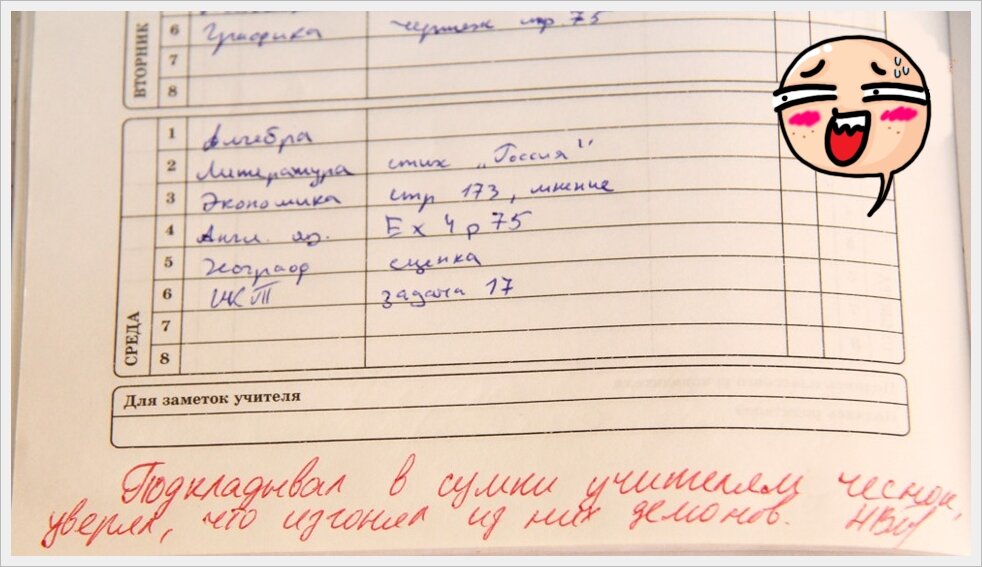 ВТОРНИК
6 Графика чертеж стр. 75
7
8
СРЕДА
1 Алгебра
2 Литература стих „Россия"
3 Экономика стр 173, мнение
4 Англ. яз. Ex 4 p 75
5 Географ сценка
6 задача 17
7
8
Для заметок учителя
Подкладывал в сумки учителям чеснок,
уверял, что изгонял из них демонов.